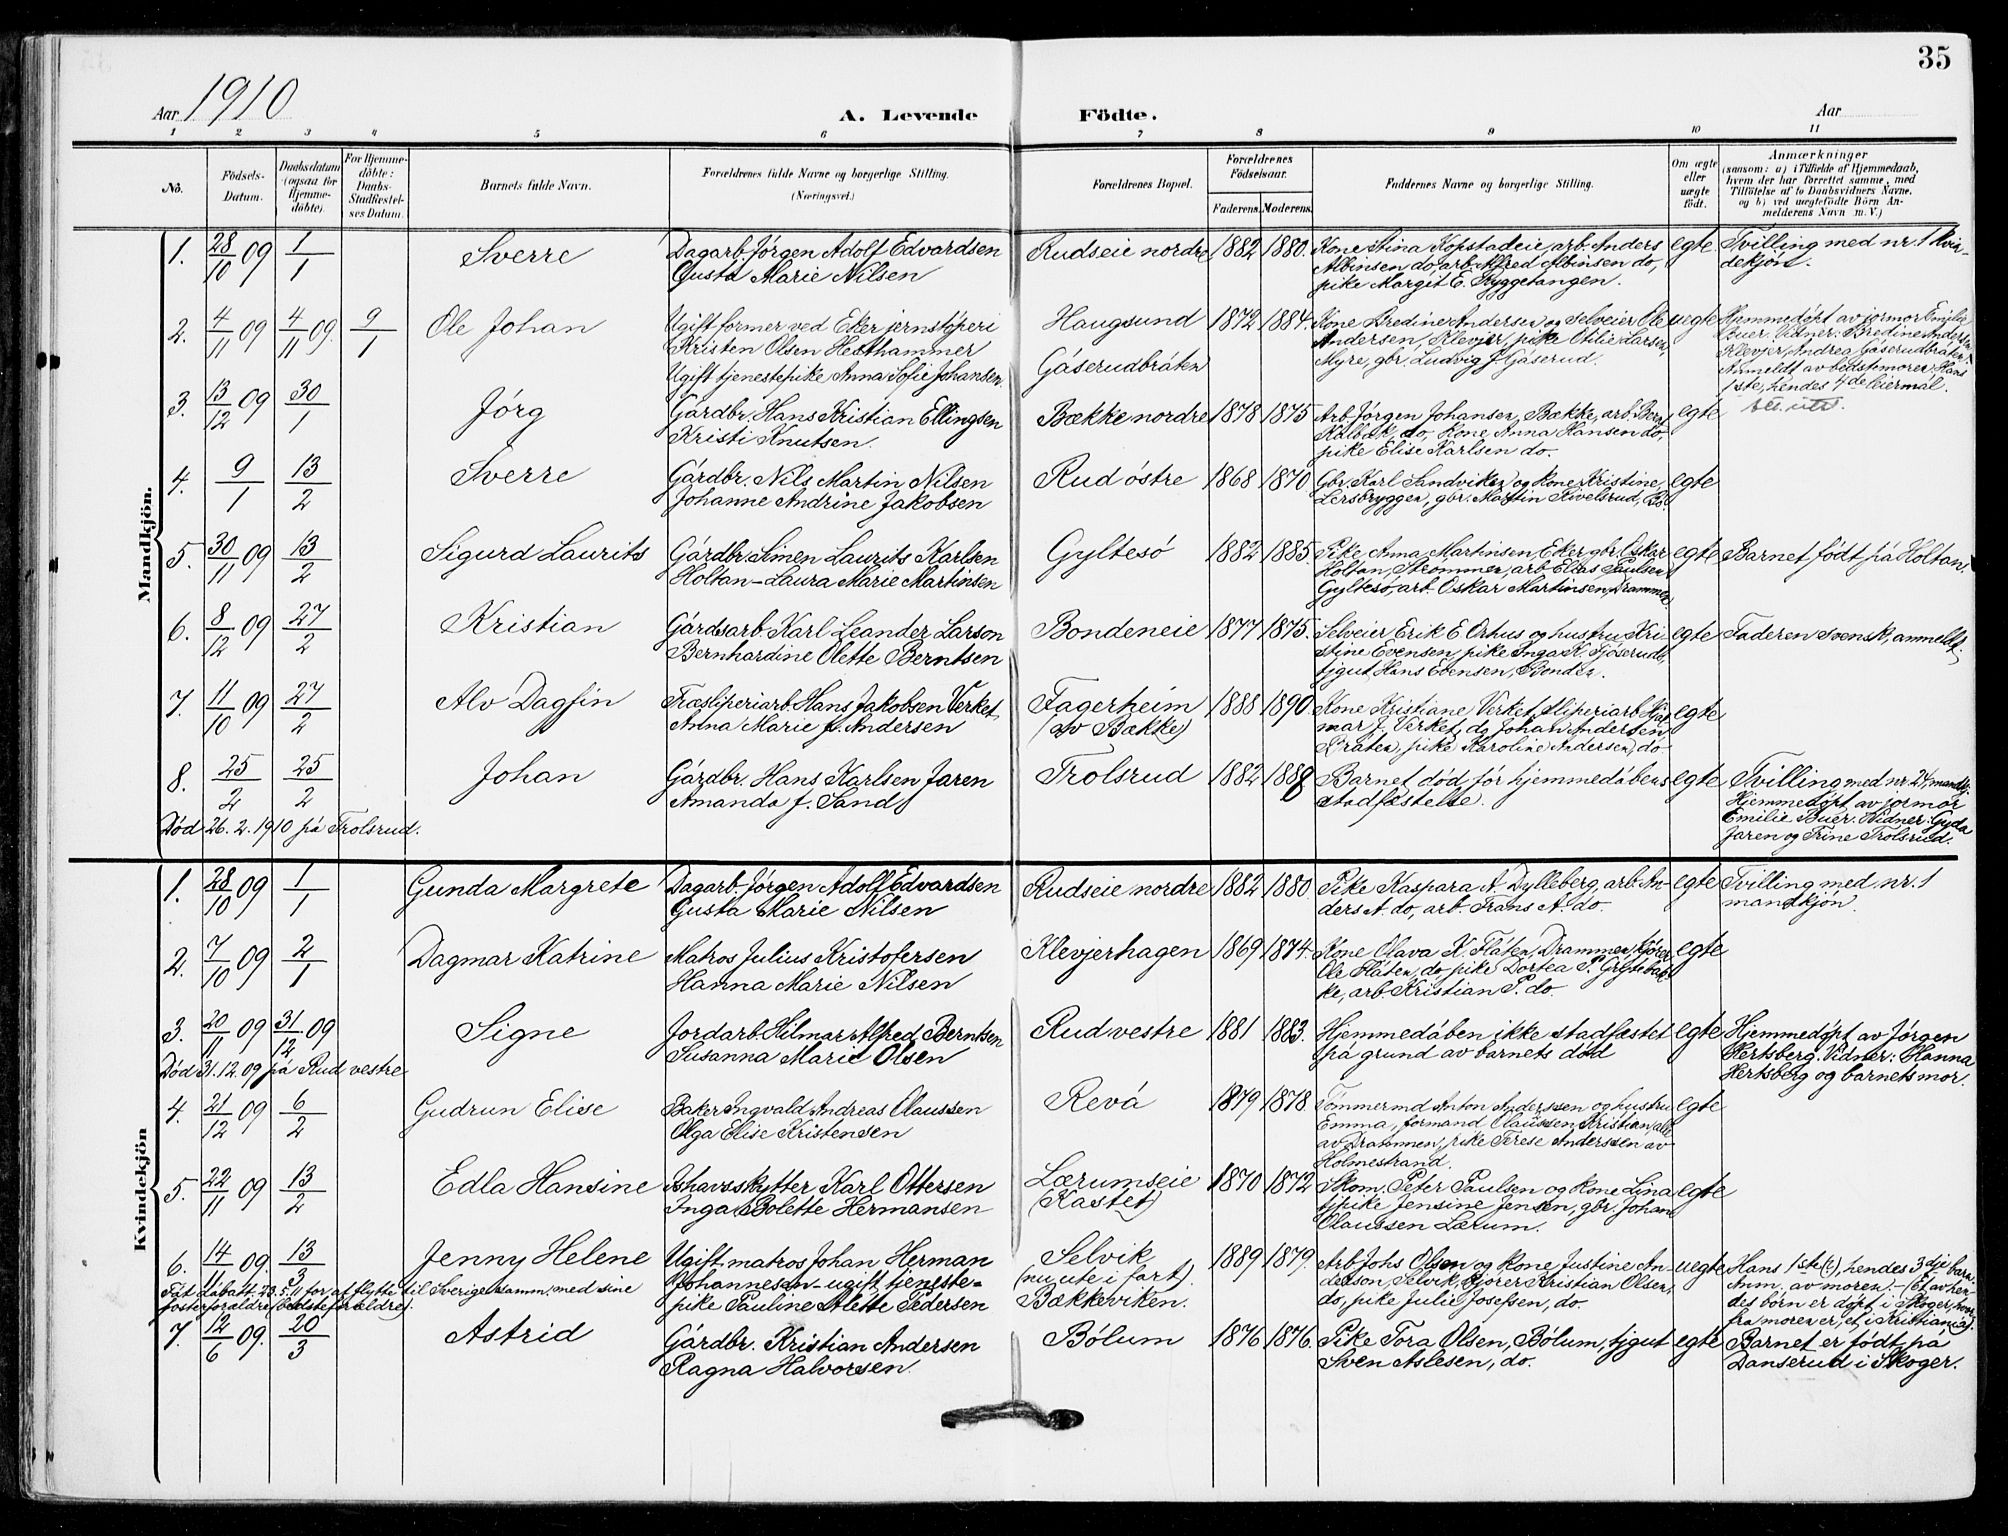 35
Aar 1910
A. Levende
Födte.
Aar
1 2 3 4 5 6 7 8 9 10 11
No.
Födsels-
Datum.
Daabsdatum
(ogsaa for
Hjemme-
döbte).
For Hjemme-
döbte:
Daabs-
Stadfæstel-
ses Datum.
Barnets fulde Navn.
Forældrenes fulde Navne og borgerlige Stilling.
(Næringsvei.)
Forældrenes Bopæl.
Forældrenes
Födselsaar.
Faderens. Moderens.
Faddernes Navne og borgerlige Stilling.
Om ægte
eller
uægte
födt.
Anmærkninger
(saasom: a) i Tilfælde af Hjemmedaab,
hvem der har forrettet samme, med
Tilföielse af to Daabsvidners Navne,
og b) ved uægtefödte Börn An-
melderens Navn m. V.)
Mandkjön.
1. 28/10 09 1/1 Sverre
Dagarb. Jørgen Adolf Edvardsen
Gusta Marie Nilsen
Rudseie nordre 1882 1880.
Kone Stina Kopstadeie, arb. Anders
Albinsen do, arb. Alfred Albinsen do,
pike Margit E. Ryggetangen.
egte
Tvilling med nr. 1 kvin-
dekjøn.
2. 4/11 09 4/11 09. 9/1 Ole Johan
Ugift former ved Eker jernstøperi
Kristen Olsen Hesthammer
Ugift tjenestepike Anna Sofie Johansen
Haugsund
Gåserudbråten
1872 1884.
Kone Bredine Andersen og selveier Ole
Andersen, Klevjer, pike Otilie Larsen,
Myre, gbr. Ludvig J. Gåserud.
uegte
Hjemmedøpt av jormor Emilie
Buer. Vidner: Bredine Andersen
Klevjer, Andrea Gåserudbråten.
Anmeldt av bedstemoren. Hans
1ste, hendes 4de leiermål.
3. 13/12 09 30/1 Jørg
Gårdbr. Hans Kristian Ellingsen
Kristi Knutsen.
Bække nordre 1878 1875
Arb. Jørgen Johansen, Bække, arb. Bernt
Kolbæk, do, kone Anna Hansen do,
pike Elise Karlsen do.
egte
4. 9/1 13/2 Sverre
Gårdbr. Nils Martin Nilsen
Johanne Andrine Jakobsen
Rud østre 1868 1870
Gbr. Karl Sandviken og kone Kristine,
Lersbryggen, gbr. Martin Sivelsrud, Bö.
egte
5. 30/11 09 13/2 Sigurd Laurits
Gårdbr. Simen Laurits Karlsen
Holtan – Laura Marie Martinsen
Gyltesø 1882 1885.
Pike Anna Martinsen, Eker, gbr. Oskar
Holtan, Strømmen, arb. Elias Paulsen
Gyltesø, arb. Oskar Martinsen, Drammen
egte
Barnet født på Holtan.
6. 8/12 09 27/2 Kristian
Gårdsarb. Karl Leander Larson
Bernhardine Olette Berntsen
Bondeneie 1877 1875.
Selveier Erik E. Orhus og hustru Kri-
stine Evensen, pike Inga K. Fjøserud,
tjgut Hans Evensen, Bonden.
egte
Faderen svensk, anmeldt.
7. 11/10 09 27/2 Alv Dagfin
Træsliperiarb. Hans Jakobsen Verket
Anna Marie f. Andersen
Fagerheim
(av Bække)
1888 1890.
Kone Kristiane Verket, sliperiarb. Hjal-
mar J. Verket, do Johan Andersen
Bråten, pike Karoline Andersen, do
egte
8. 25/2 25/2 Johan
Gårdbr. Hans Karlsen Jaren
Amanda f. Sand
Trolsrud 1882 1888
Barnet død før hjemmedåbens
stadfæstelse.
egte
Tvilling med nr. 24, mandkj.
Hjemmedøpt av jormor
Emilie Buer. Vidner: Gyda
Jaren og Trine Trolsrud.
Død 26.2.1910 på Trolsrud.
Kvindekjön
1. 28/10 09 1/1 Gunda Margrete
Dagarb. Jørgen Adolf Edvardsen
Gusta Marie Nilsen
Rudseie nordre 1882 1880.
Pike Kaspara A. Dylleberg, arb. An-
ders A. do, arb. Frans A. do.
egte
Tvilling med nr. 1
mandkjön.
2. 7/10 09 2/1 Dagmar Katrine
Matros Julius Kristofersen
Hanna Marie Nilsen
Klevjerhagen 1869 1874.
Kone Olava K. Flåten, Drammen, kjører
Ole Flåten, do, pike Dortea P. Grytebak-
ke, arb. Kristian P. do.
egte
3. 20/11 09 31/12 09 Signe
Jordarb. Hilmar Alfred Berntsen
Susanna Marie Olsen
Rud vestre 1881 1883.
Hjemmedåben ikke stadfæstet
på grund av barnets død
egte
Hjemmedøpt av Jørgen
Hertsberg. Vidner: Hanna
Hertsberg og barnets mor.
Død 31.12.09 på Rud vestre
4. 21/12 09 6/2 Gudrun Elise
Baker Ingvald Andreas Olaussen
Olga Elise Kristensen
Revå 1879 1878
Tømmermd Anton Anderssen og hustru
Emma, formand Olaussen Kristian, alle
av Drammen, pike Terese Anderssen av
Holmestrand.
egte
5. 22/11 09 13/2 Edla Hansine
Ishavsskytter Karl Ottersen
Inga Bolette Hermansen
Lærumseie
(Kastet)
1870 1872
Skom. Peter Paulsen og kone Lina
tjpike Jensine Jensen, gbr. Johan
Olaussen Lærum.
egte
6. 14/11 09. 13/3 Jenny Helene
Ugift matros Johan Herman
Johannesen – ugift tjeneste-
pike Pauline Alette Pedersen
Selvik
(nu ute i fart).
Bækkeviken.
1889 1879.
Arb. Johs Olsen og kone Justine An-
dersen, Selvik, kjører Kristian Olsen,
do, pike Julie Josefsen, do.
uegte
Hans 1ste (?), hendes 3dje barn.
Anm. av moren. – (Et av hen-
des børn er døpt i Skoger, hvor-
fra moren er, et i Kristiania).
Fåt dåbatt. 23.5.11 for at flytte til Sverige samm. med sine
fosterforældre (bedsteforældre).
7. 12/6 09. 20/3 Astrid
Gårdbr. Kristian Andersen
Ragna Halvorsen.
Bölum 1876 1876.
Pike Tora Olsen, Bölum, tjgut
Sven Aslesen, do.
egte
Barnet er født på
Danserud i Skoger.